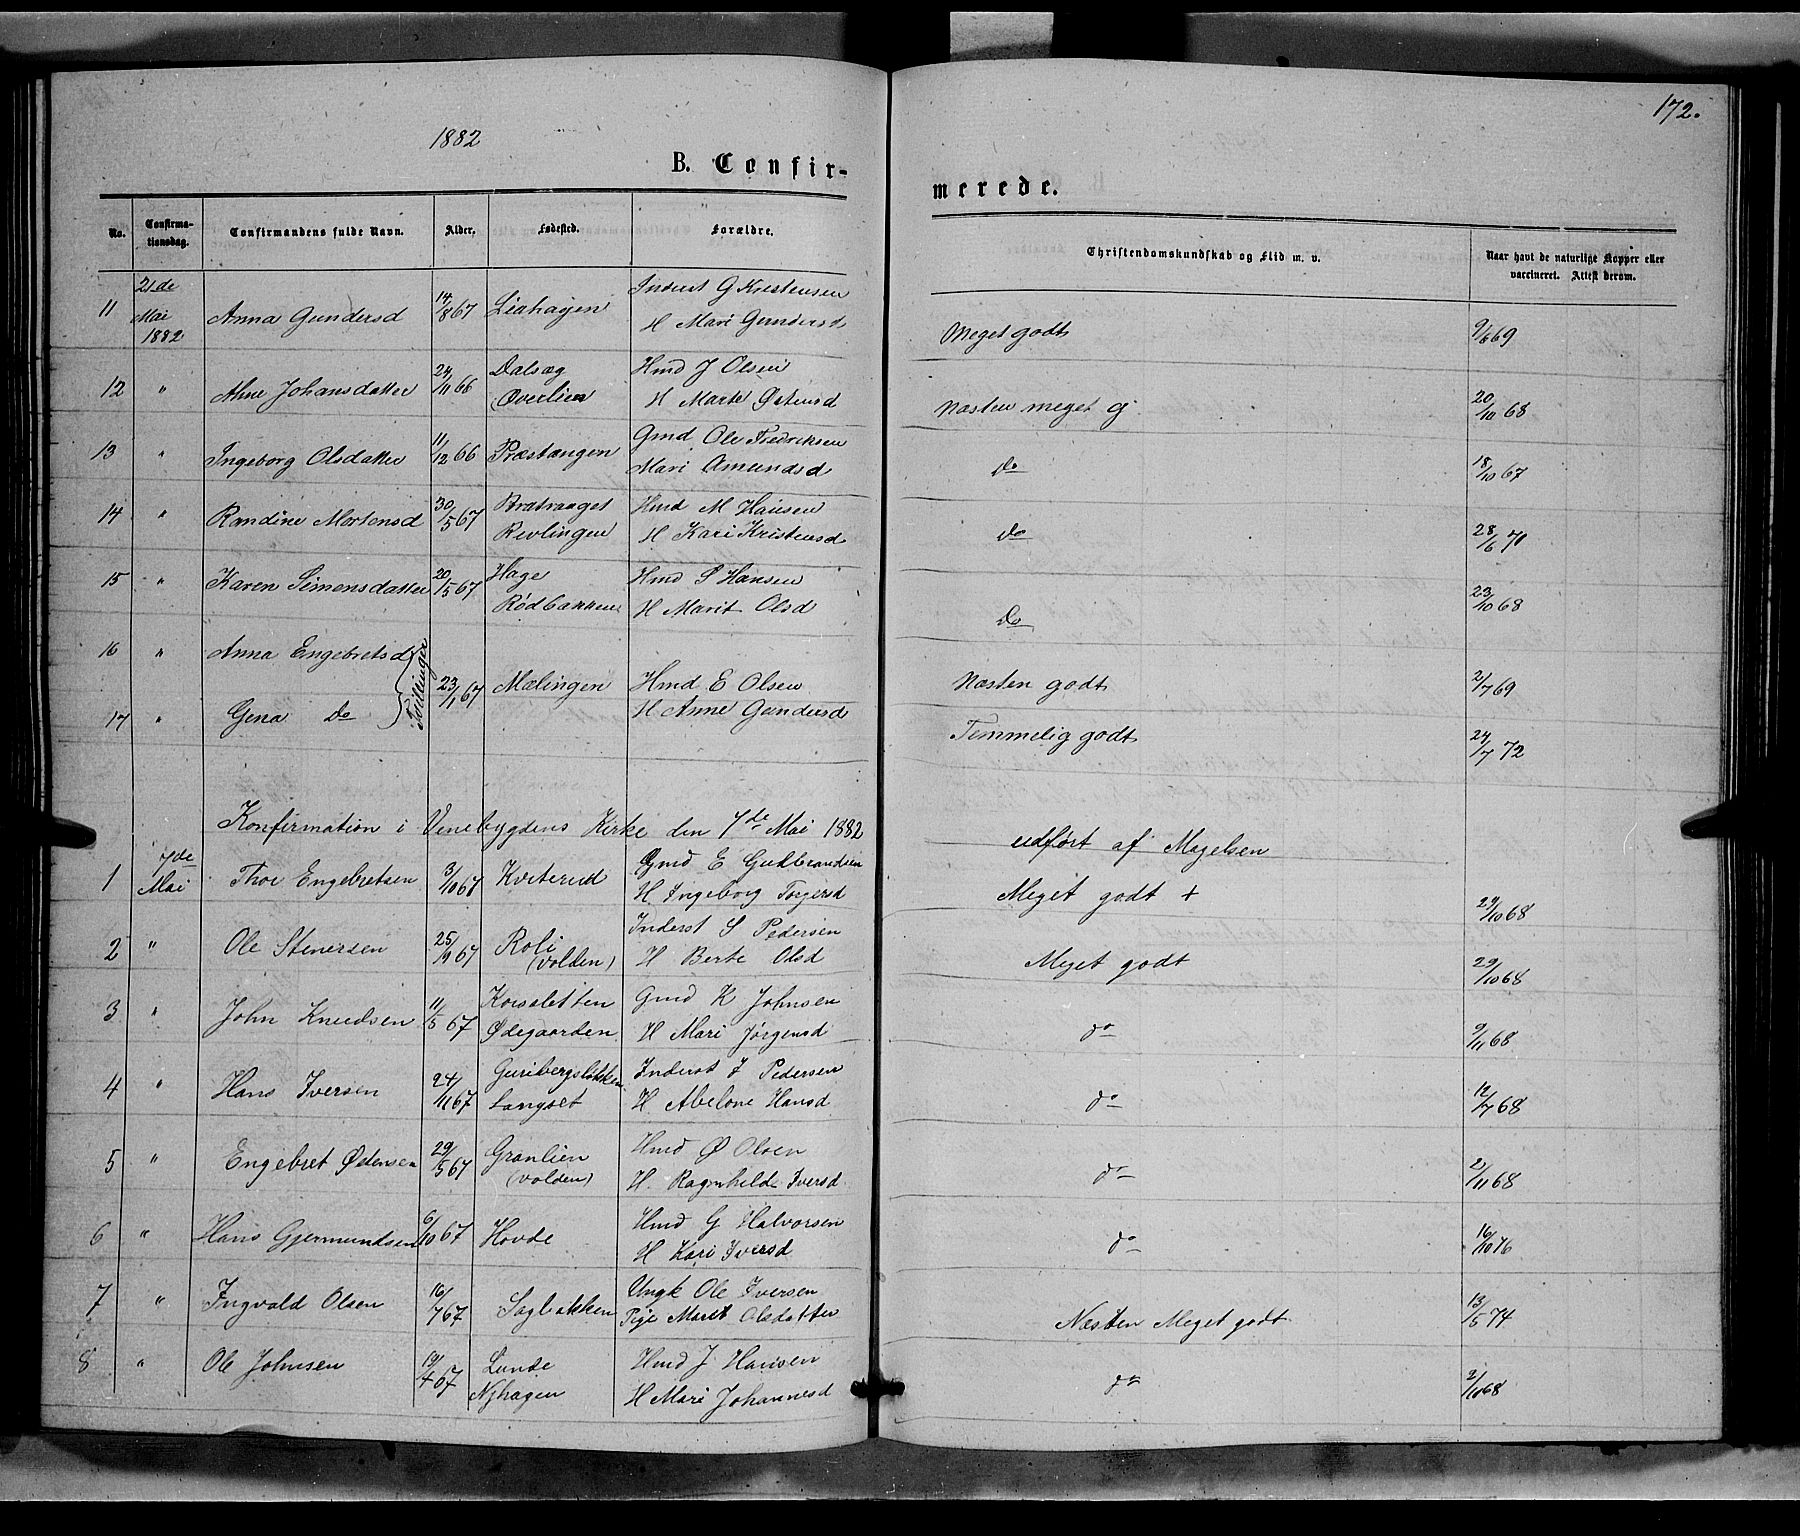 172.
1882
B. Confir-
merede.
No. Confirma-tionsdag. Confirmandens fulde Navn. Alder. Fødested. Forældre. Christendomskundskab og Flid m. v. Naar havt de naturlige Kopper eller vaccineret. Attest derom.
11 21de Mai 1882 Anna Gundersd 14/8 67 Liahagen Inderst G Kristensen
H Mari Gundersd Meget godt 9/6 69
12 " Ahne Johansdatter 24/11 66 Dalsæg Hmd J Olsen
(Øverlien H Marte Østensd Næsten meget g 20/10 68
13 " Ingeborg Olsdatter 11/12 66 Præstangen Gmd Ole Fredriksen
Mari Amundsd Do 18/10 67
14 " Randine Mortensd 30/5 67 Bratvanget Hmd M Hansen
Revlingen H Kari Kristensd Do 28/6 70
15 " Karen Simensdatter 20/5 67 Hage Hmd S Hansen
Rødbakken H Marit Olsd Do 23/10 68
16 " Anna Engebretsd Tvillinger 23/1 67 Mælingen Hmd E Olsen Næsten godt 2/7 69
17 " Gena Do H Anne Gundersd Temmelig godt 24/7 72
Konfirmation i Venebygdens Kirke den 7de Mai 1882 udført af Magelsen
1 7de Mai Thor Engebretsen 3/10 67 Kviterud Gmd E Gudbrandsen
H Ingeborg Torgersd Meget godt + 29/10 68
2 " Ole Stenersen 25/9 67 Roli Inderst S Pedersen
(volden) H Berte Olsd Meget godt 29/10 68
3 " John Knudsen 11/5 67 Korsletten Gmd K Johnsen
Ødegaarden H Mari Jørgensd do 9/11 68
4 " Hans Iversen 24/11 67 Guribergsløkken Inderst I Pedersen
Langset H Abelone Hansd do 12/7 68
5 " Engebret Ødensen 29/5 67 Granlien Hmd Ø Olsen
(volden) H. Ragnhilde Iversd do 2/11 68
6 " Hans Gjermundsen 6/10 67 Hovde Hmd G Halvorsen
H Kari Iversd do 16/10 76
7 " Ingvald Olsen 16/7 67 Sagbakken Ungk Ole Iversen
Pige Maret Olsdatter Næsten Meget godt 13/5 74
8 " Ole Johnsen 19/4 67 Lunde Hmd J Hansen
Nyhagen H Mari Johannesd do 2/10 68